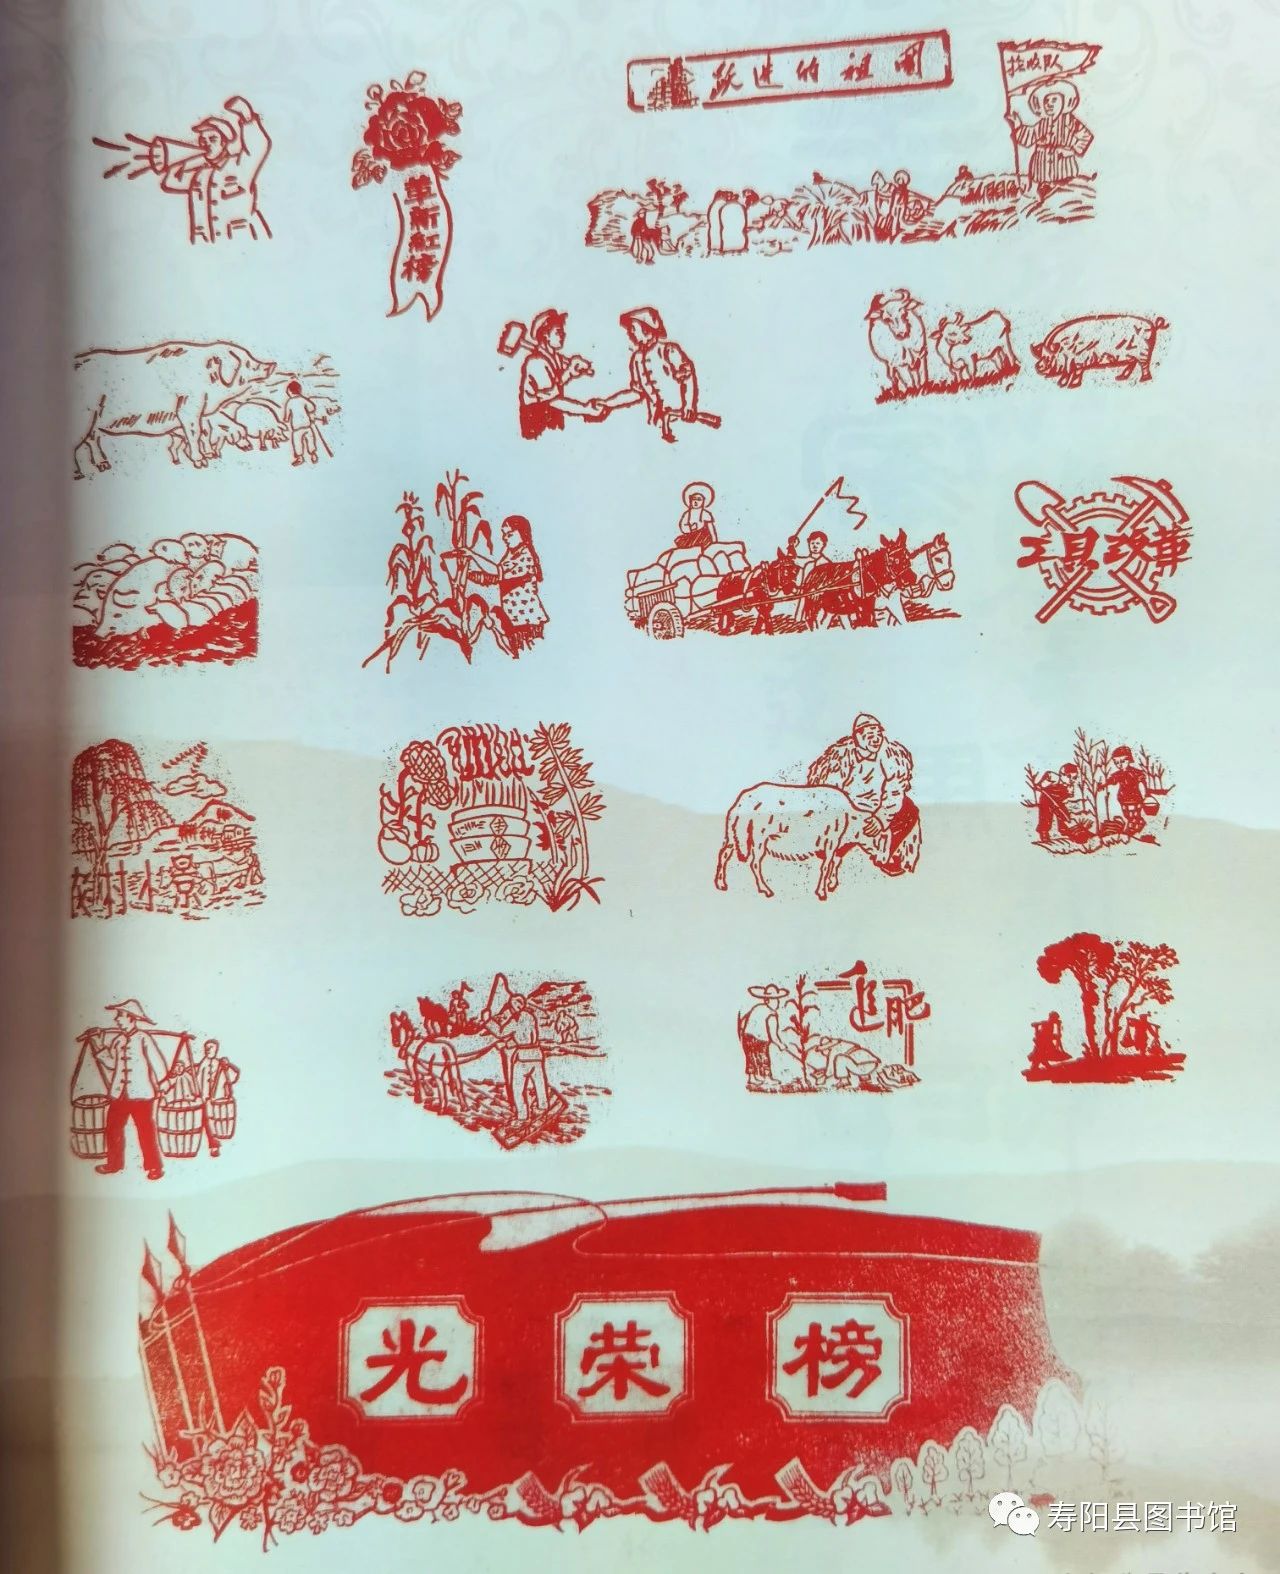 跃进的祖国
抢收队
革新紅榜
工具改革
农村小景
追肥
光荣榜
寿阳县图书馆